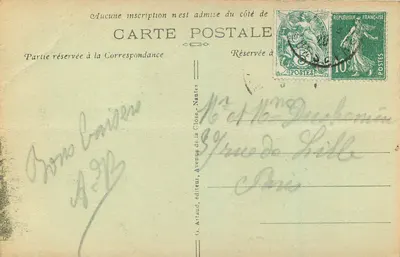 Aucune inscription n'est admise du côté de
CARTE POSTALE
Partie réservée à la Correspondance
Réservée à
RÉPUBLIQUE FRANÇAISE
POSTES
10
POSTES
Bons baisers
Mr et Mme Duchemin
37 rue de Lille
Paris
Artaud, éditeur, Avenue de la Close, Nantes